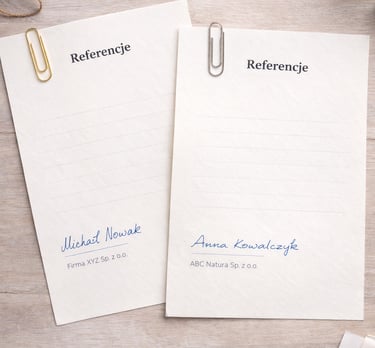 Referencje
Michał Nowak
Firma XYZ Sp. z o.o.
Referencje
Anna Kowalczyk
ABC Natura Sp. z o.o.